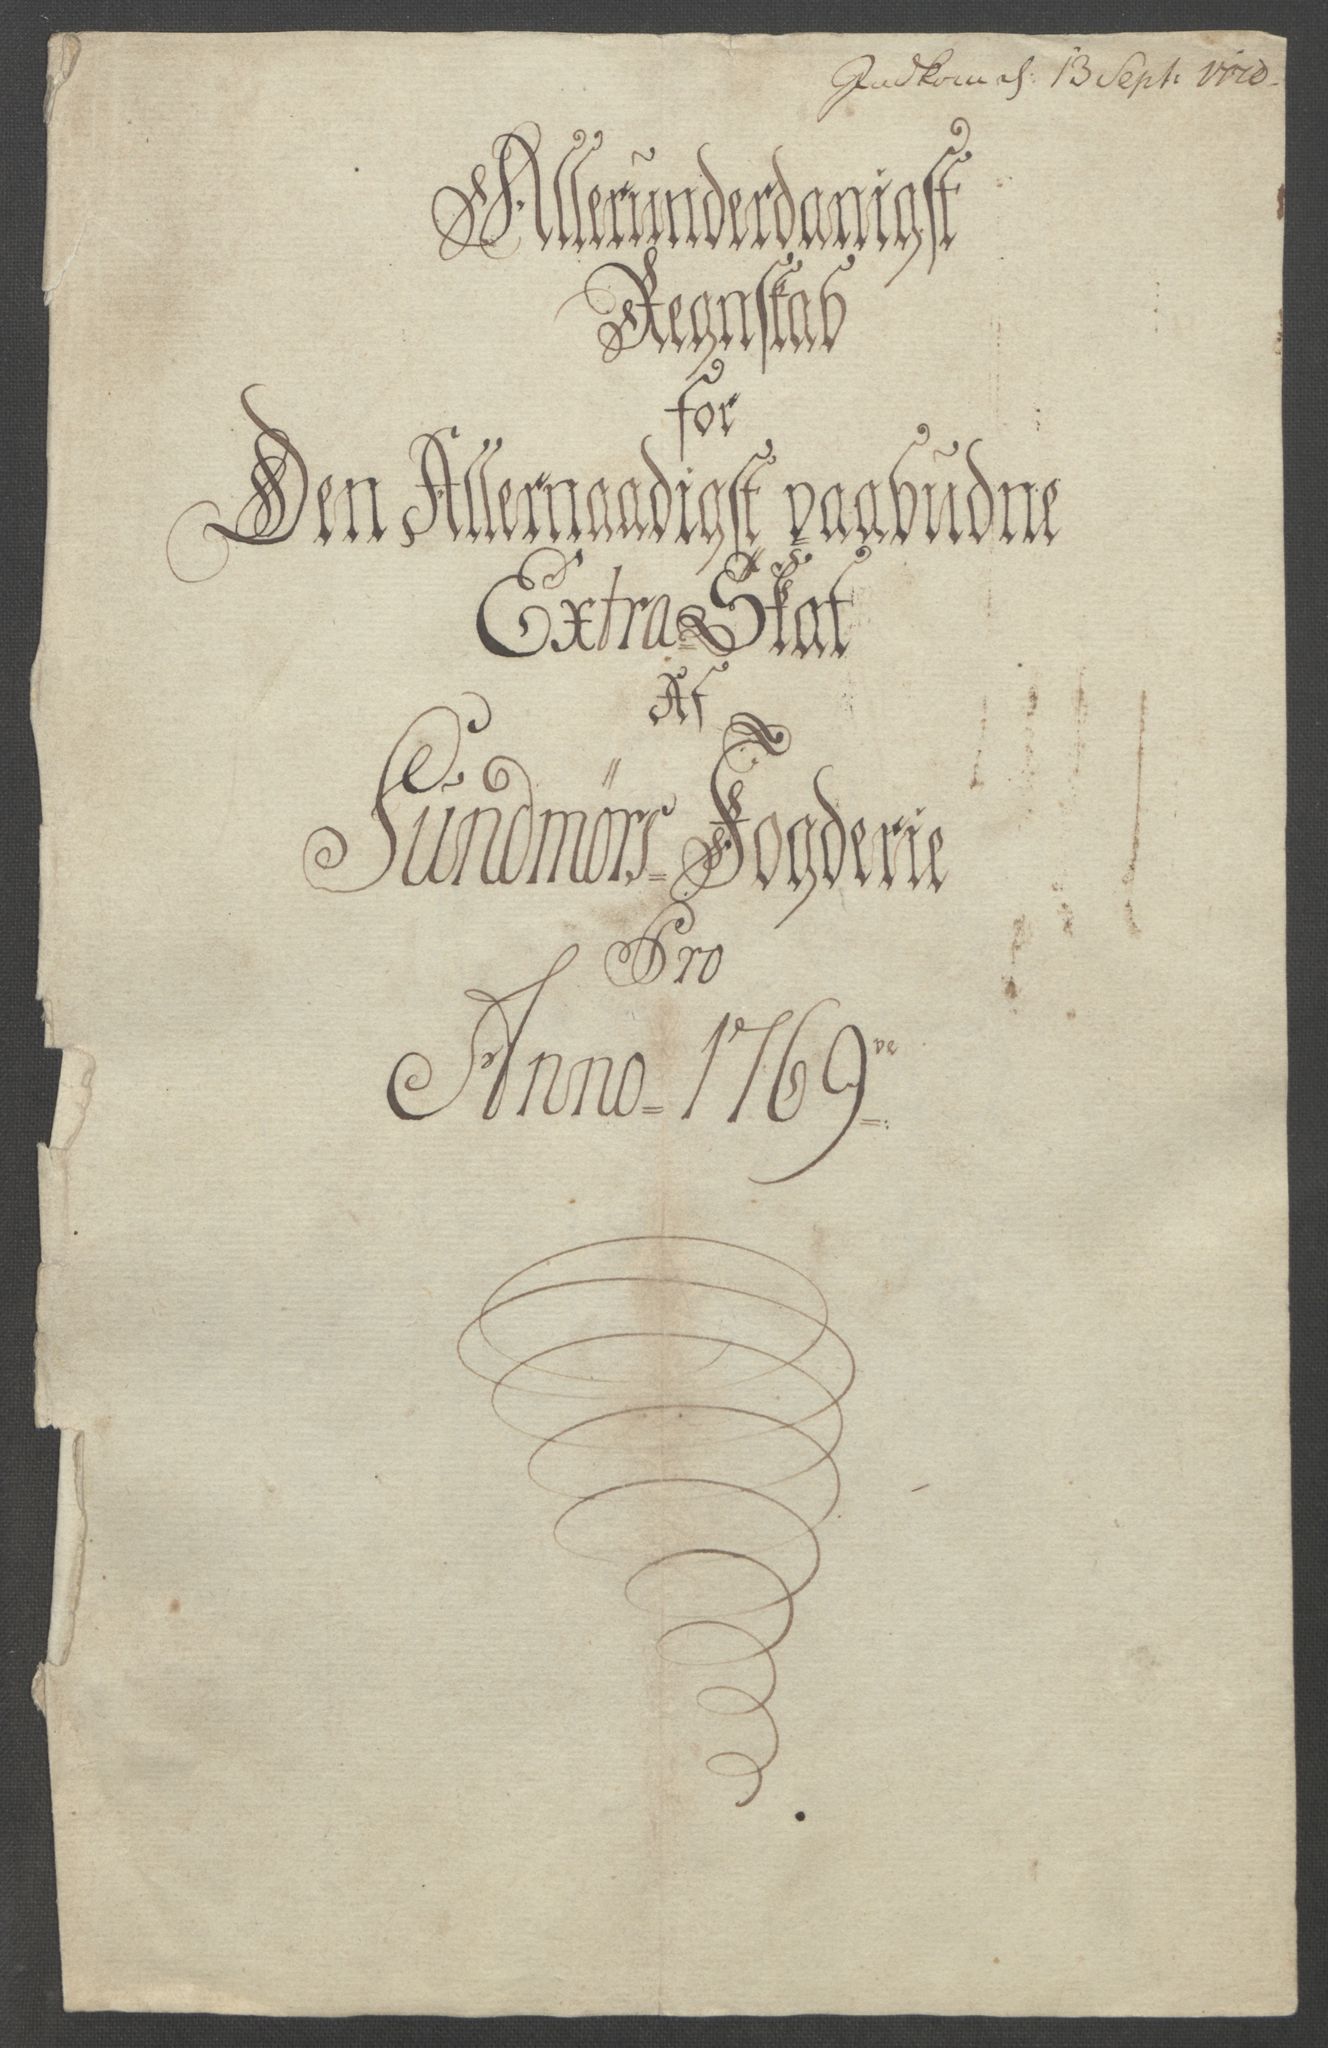 Indkom d: 13 Sept: 1770
Allerunderdanigst
Regnskab
for
Den Allernaadigst paabudne
Extra Skat
Af
Sundmørs Fogderie
Pro
Anno 1769ve